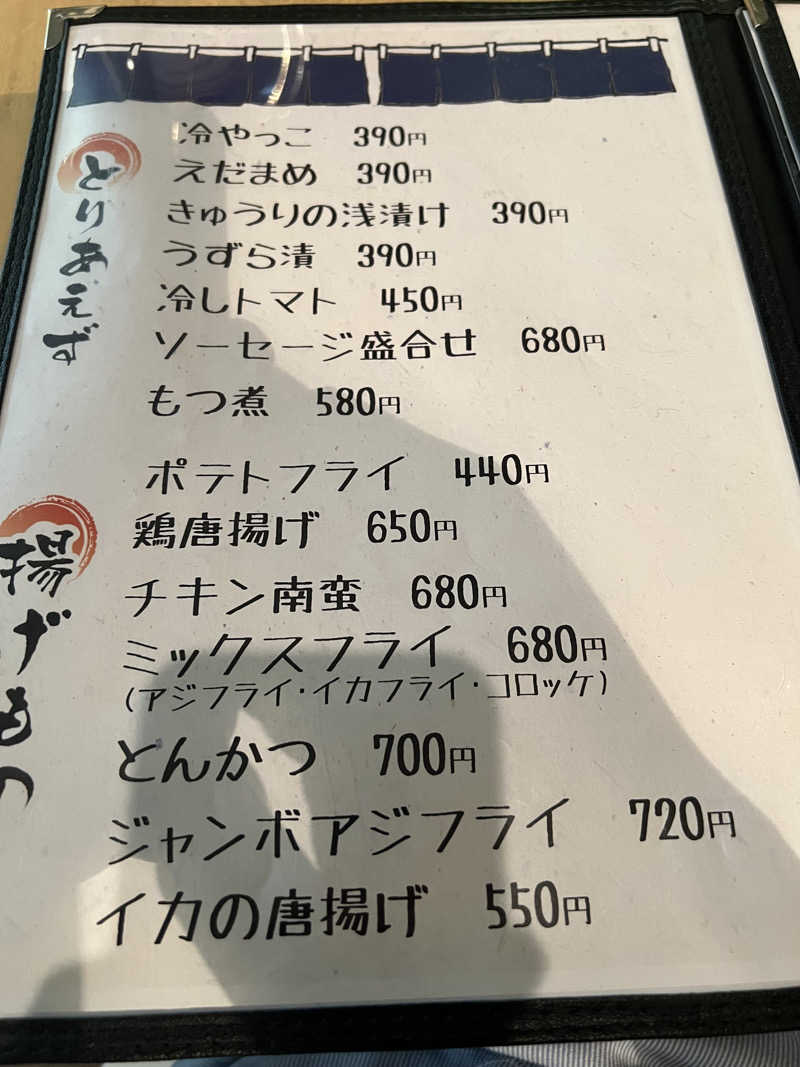 とりあえず
冷やっこ 390円
えだまめ 390円
きゅうりの浅漬け 390円
うずら漬 390円
冷しトマト 450円
ソーセージ盛合せ 680円
もつ煮 580円
揚げもの
ポテトフライ 440円
鶏唐揚げ 650円
チキン南蛮 680円
ミックスフライ 680円
(アジフライ・イカフライ・コロッケ)
とんかつ 700円
ジャンボアジフライ 720円
イカの唐揚げ 550円